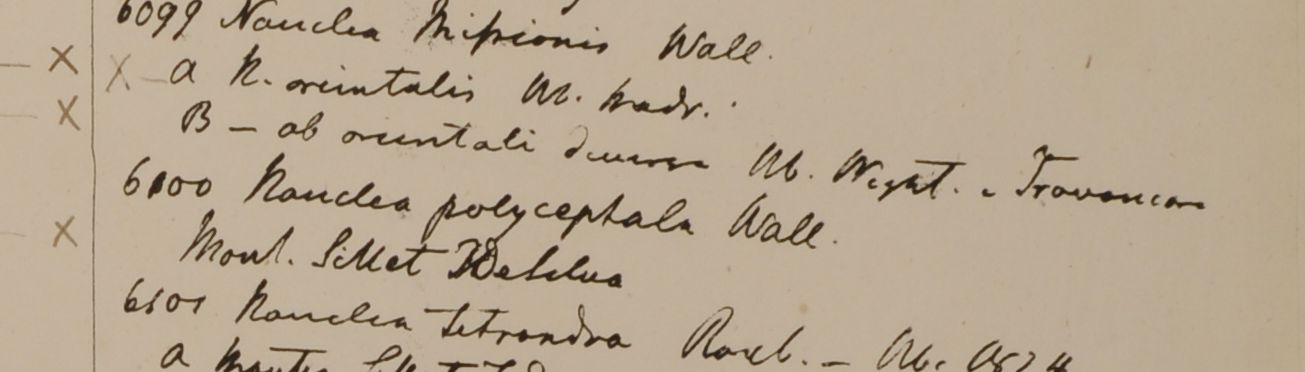 6099 Nauclea Missionis Wall.
X a N. orientalis Hb. Madr.
B – ab orientali diversa Hb. Wight. e Travancore
6100 Nauclea polycephala Wall.
Mont. Sillet
6101 Nauclea tetrandra Roxb. – Hb. 1824
a Montes Sillet